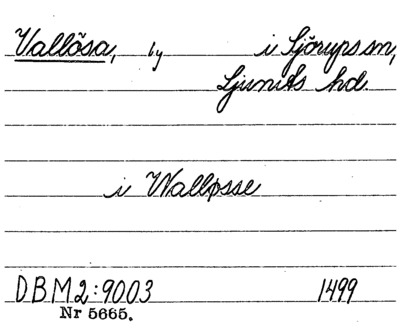 Vallösa, by i Sjörups sn,
Ljunits hd.
i Walløsse
DBM2:9003 1499
Nr 5665.